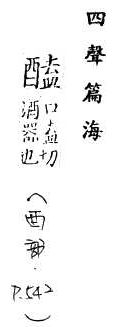 四聲篇海
醘口盍切
酒器也
(酉部.
P.542)